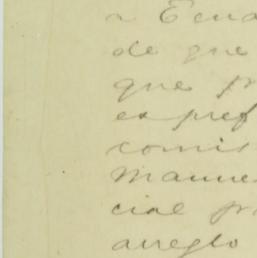 a Ecua
de que
que pr
es pref
comis
manne
cial pr
arreglo